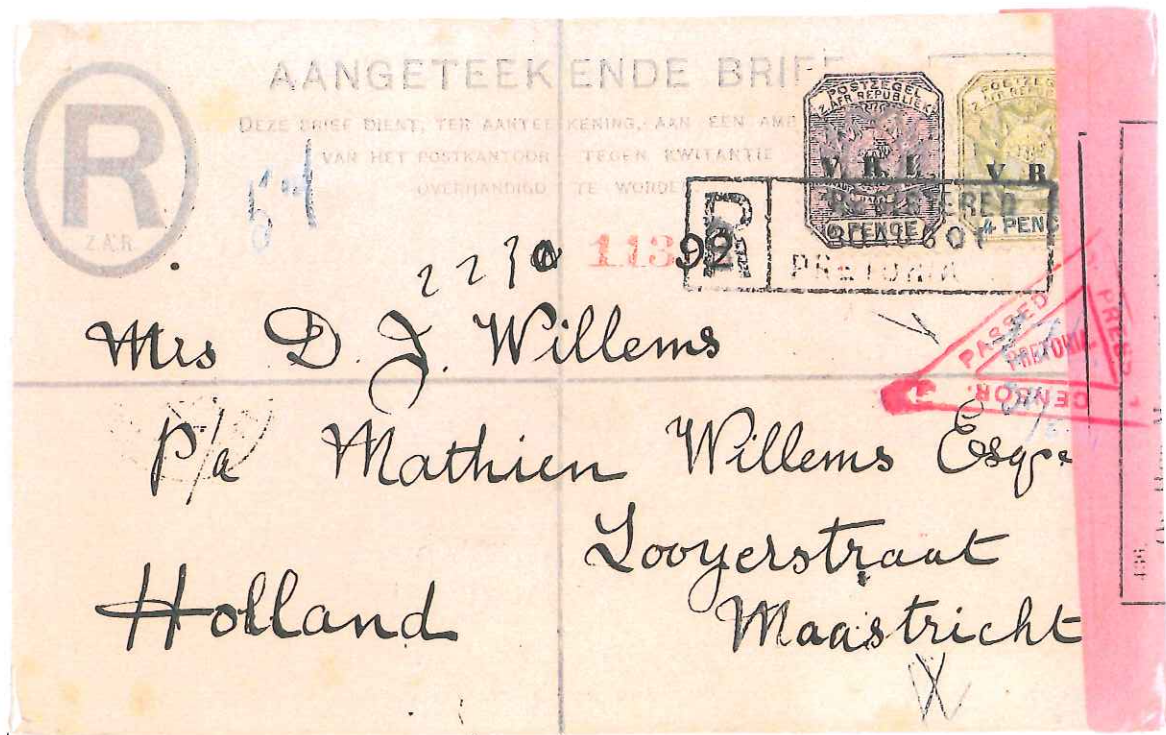 AANGETEEKENDE BRIEF
DEZE BRIEF DIENT, TER AANTEEKENING, AAN EEN AMB
VAN HET POSTKANTOOR TEGEN KWITANTIE
OVERHANDIGD TE WORDE
R
Z.A.R.
POSTZEGEL
Z. AFR. REPUBLIEK
V. R. I.
6 PENCE
POSTZEG
Z. AFR. REPUB
V. R
4 PENC
R
REGISTERED
PRETORIA
2230
11392
PASSED
PRETORIA
CENSOR.
Mrs D. J. Willems
p/a Mathien Willems Esqre
Looyerstraat
Holland Maastricht